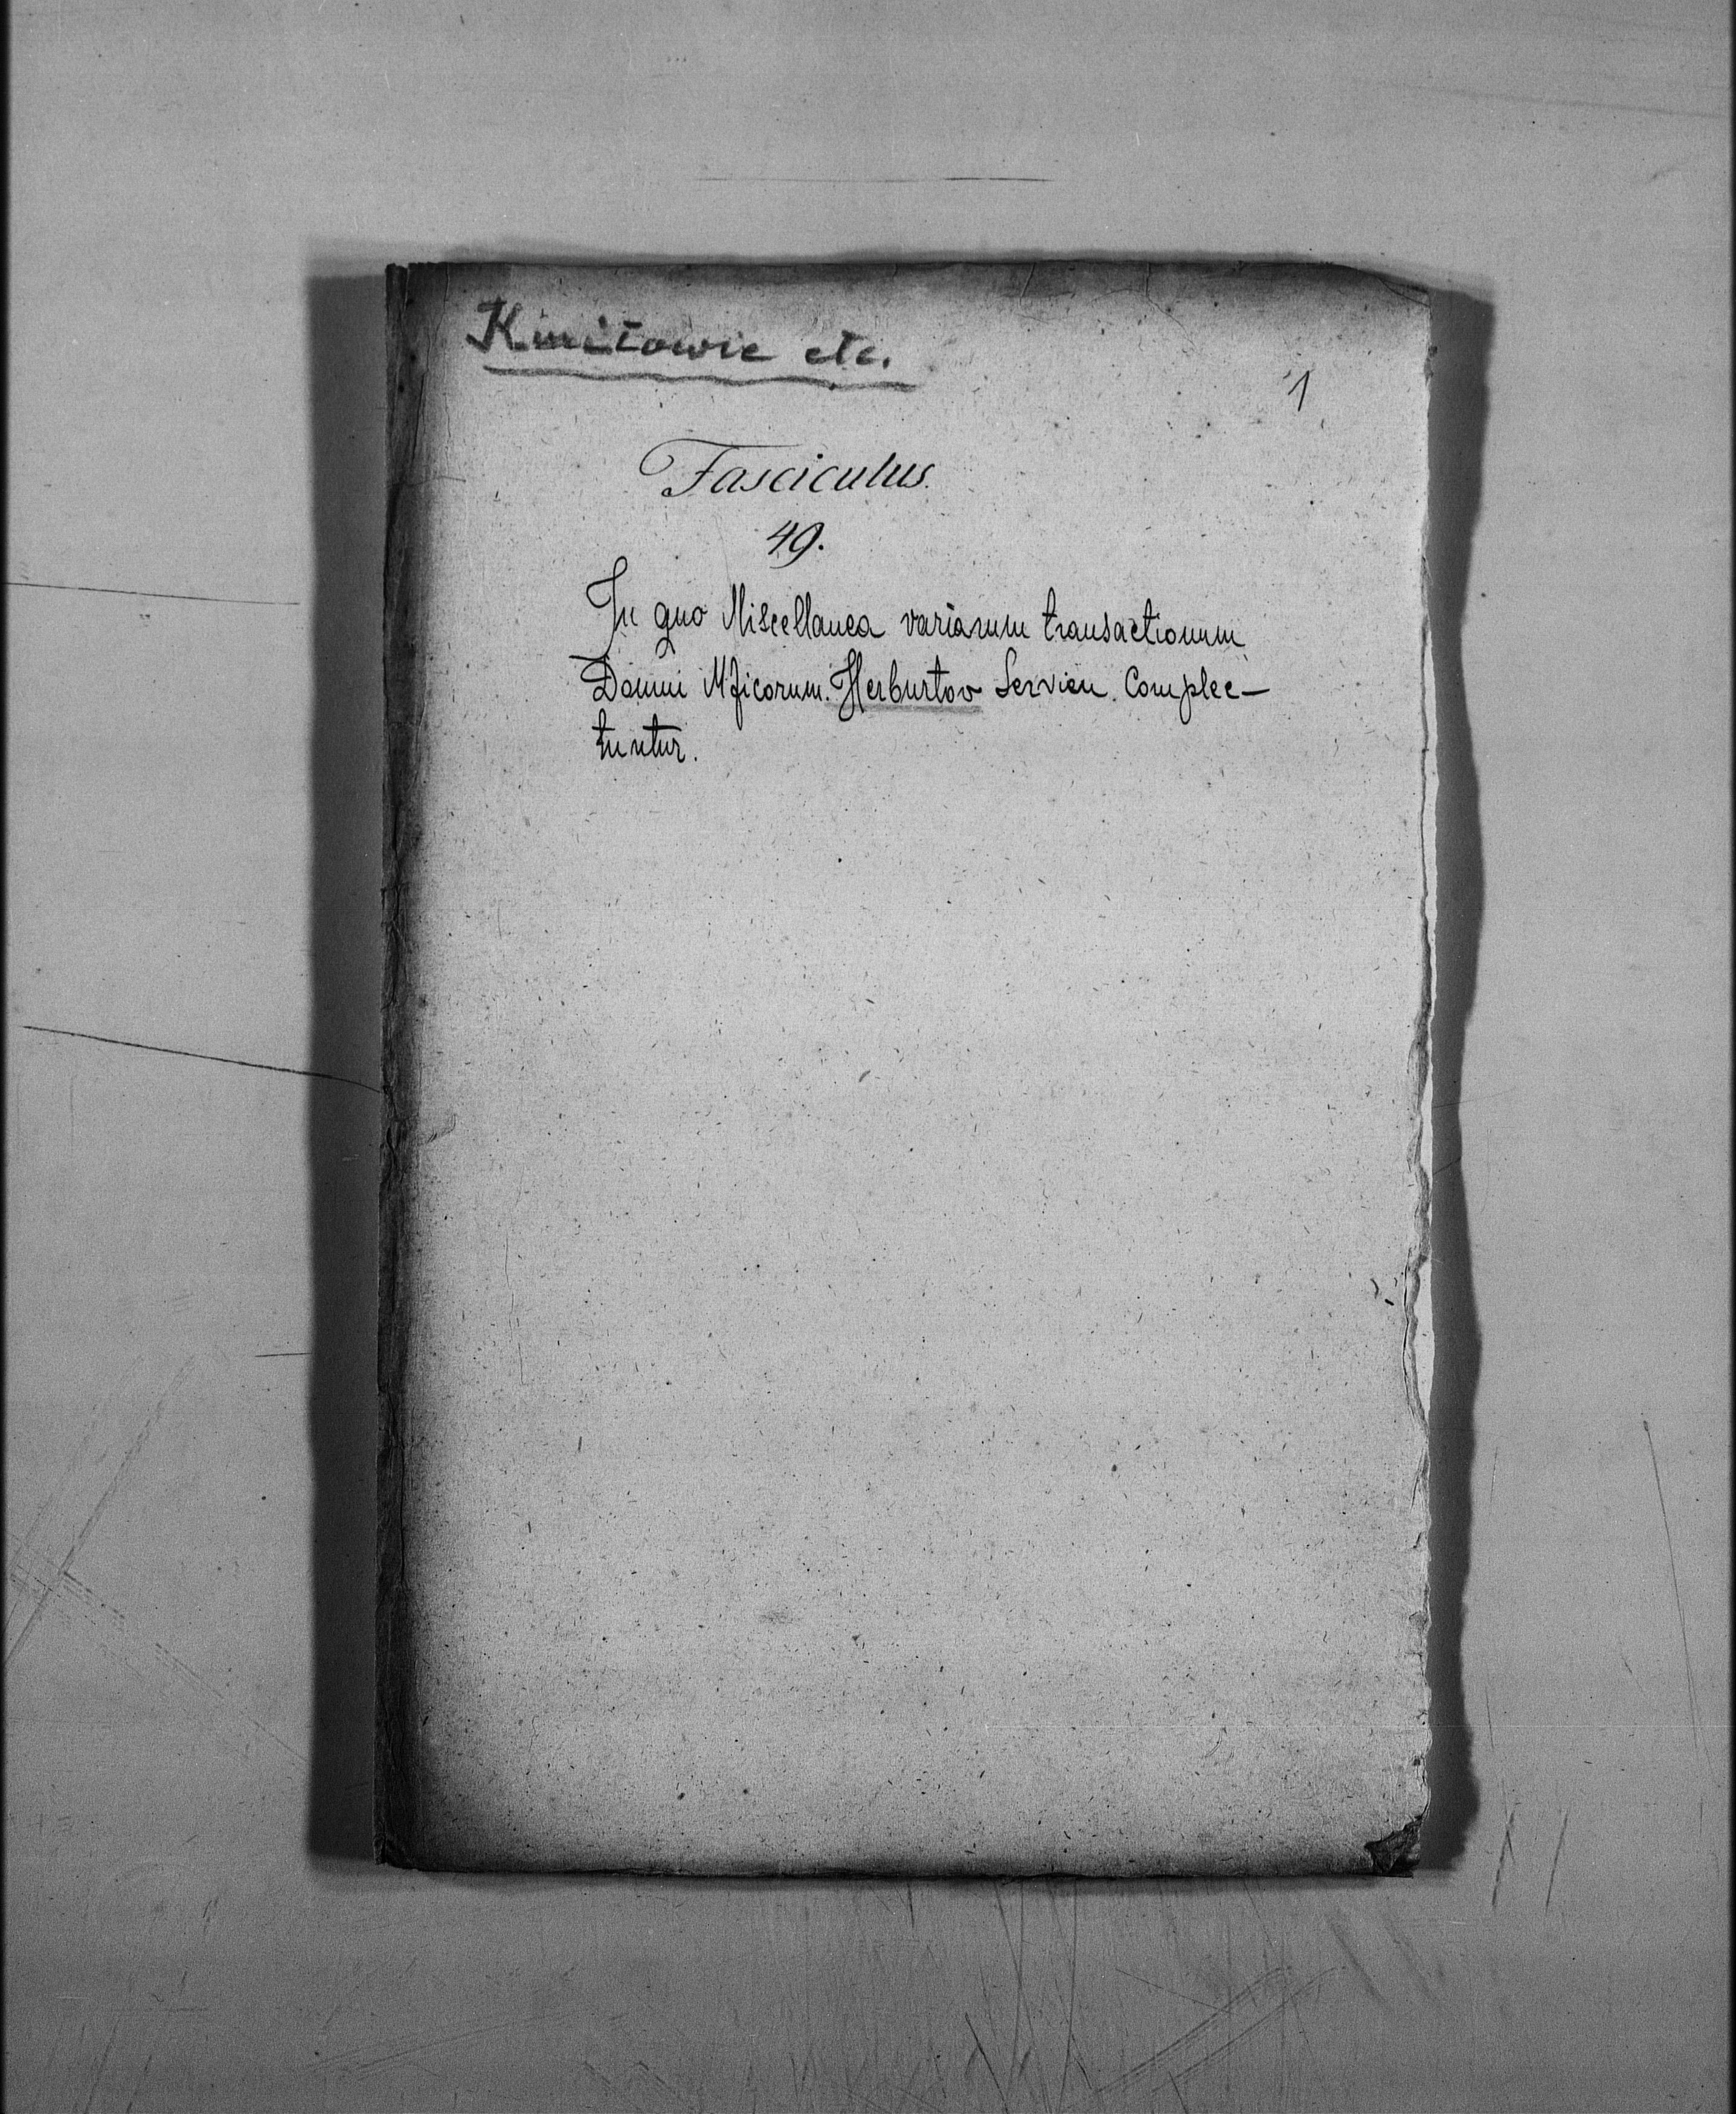 Kmitowie etc.
1
Fasciculus
49.
In quo Miscellanea variarum transactionum
Domui Mficorum. Herburtov Servien. Complec-
tuntur.